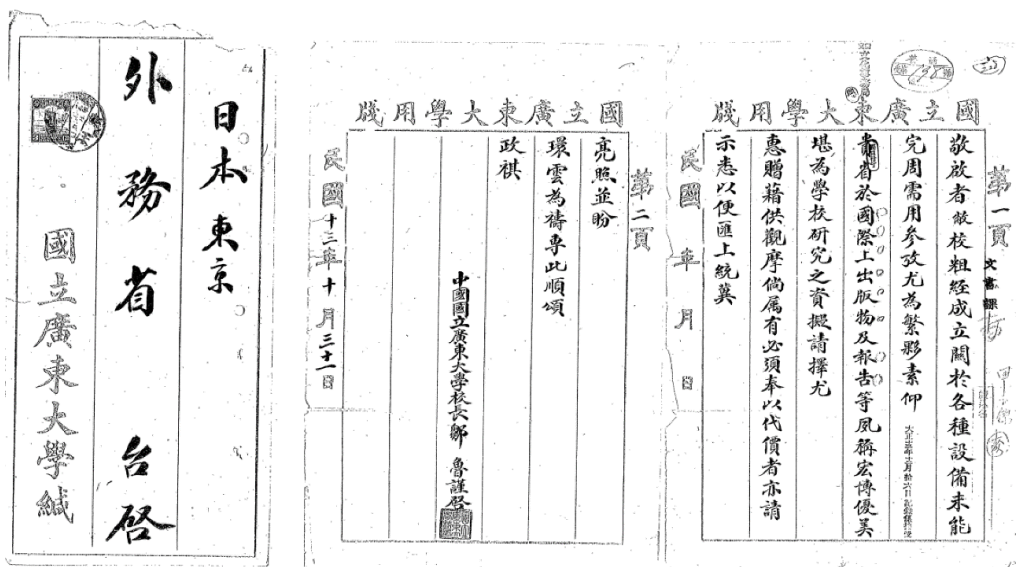 國立廣東大學用牋
第一頁
文書課
敬啟者敝校粗経成立關於各種設備未能
完周需用參攷尤為繁夥素仰
貴省於國際上出版物及報告等夙稱宏博優美
堪為學校研究之資擬請擇尤
惠贈藉供觀摩倘属有必須奉以代價者亦請
示悉以便匯上統冀
民國 年 月 日
國立廣東大學用牋
第二頁
亮照並盼
環雲為禱專此順頌
政祺
中國國立廣東大學校長鄒 魯謹啓
民國十三年十月三十一日
日本東京
外務省 台啓
國立廣東大學緘